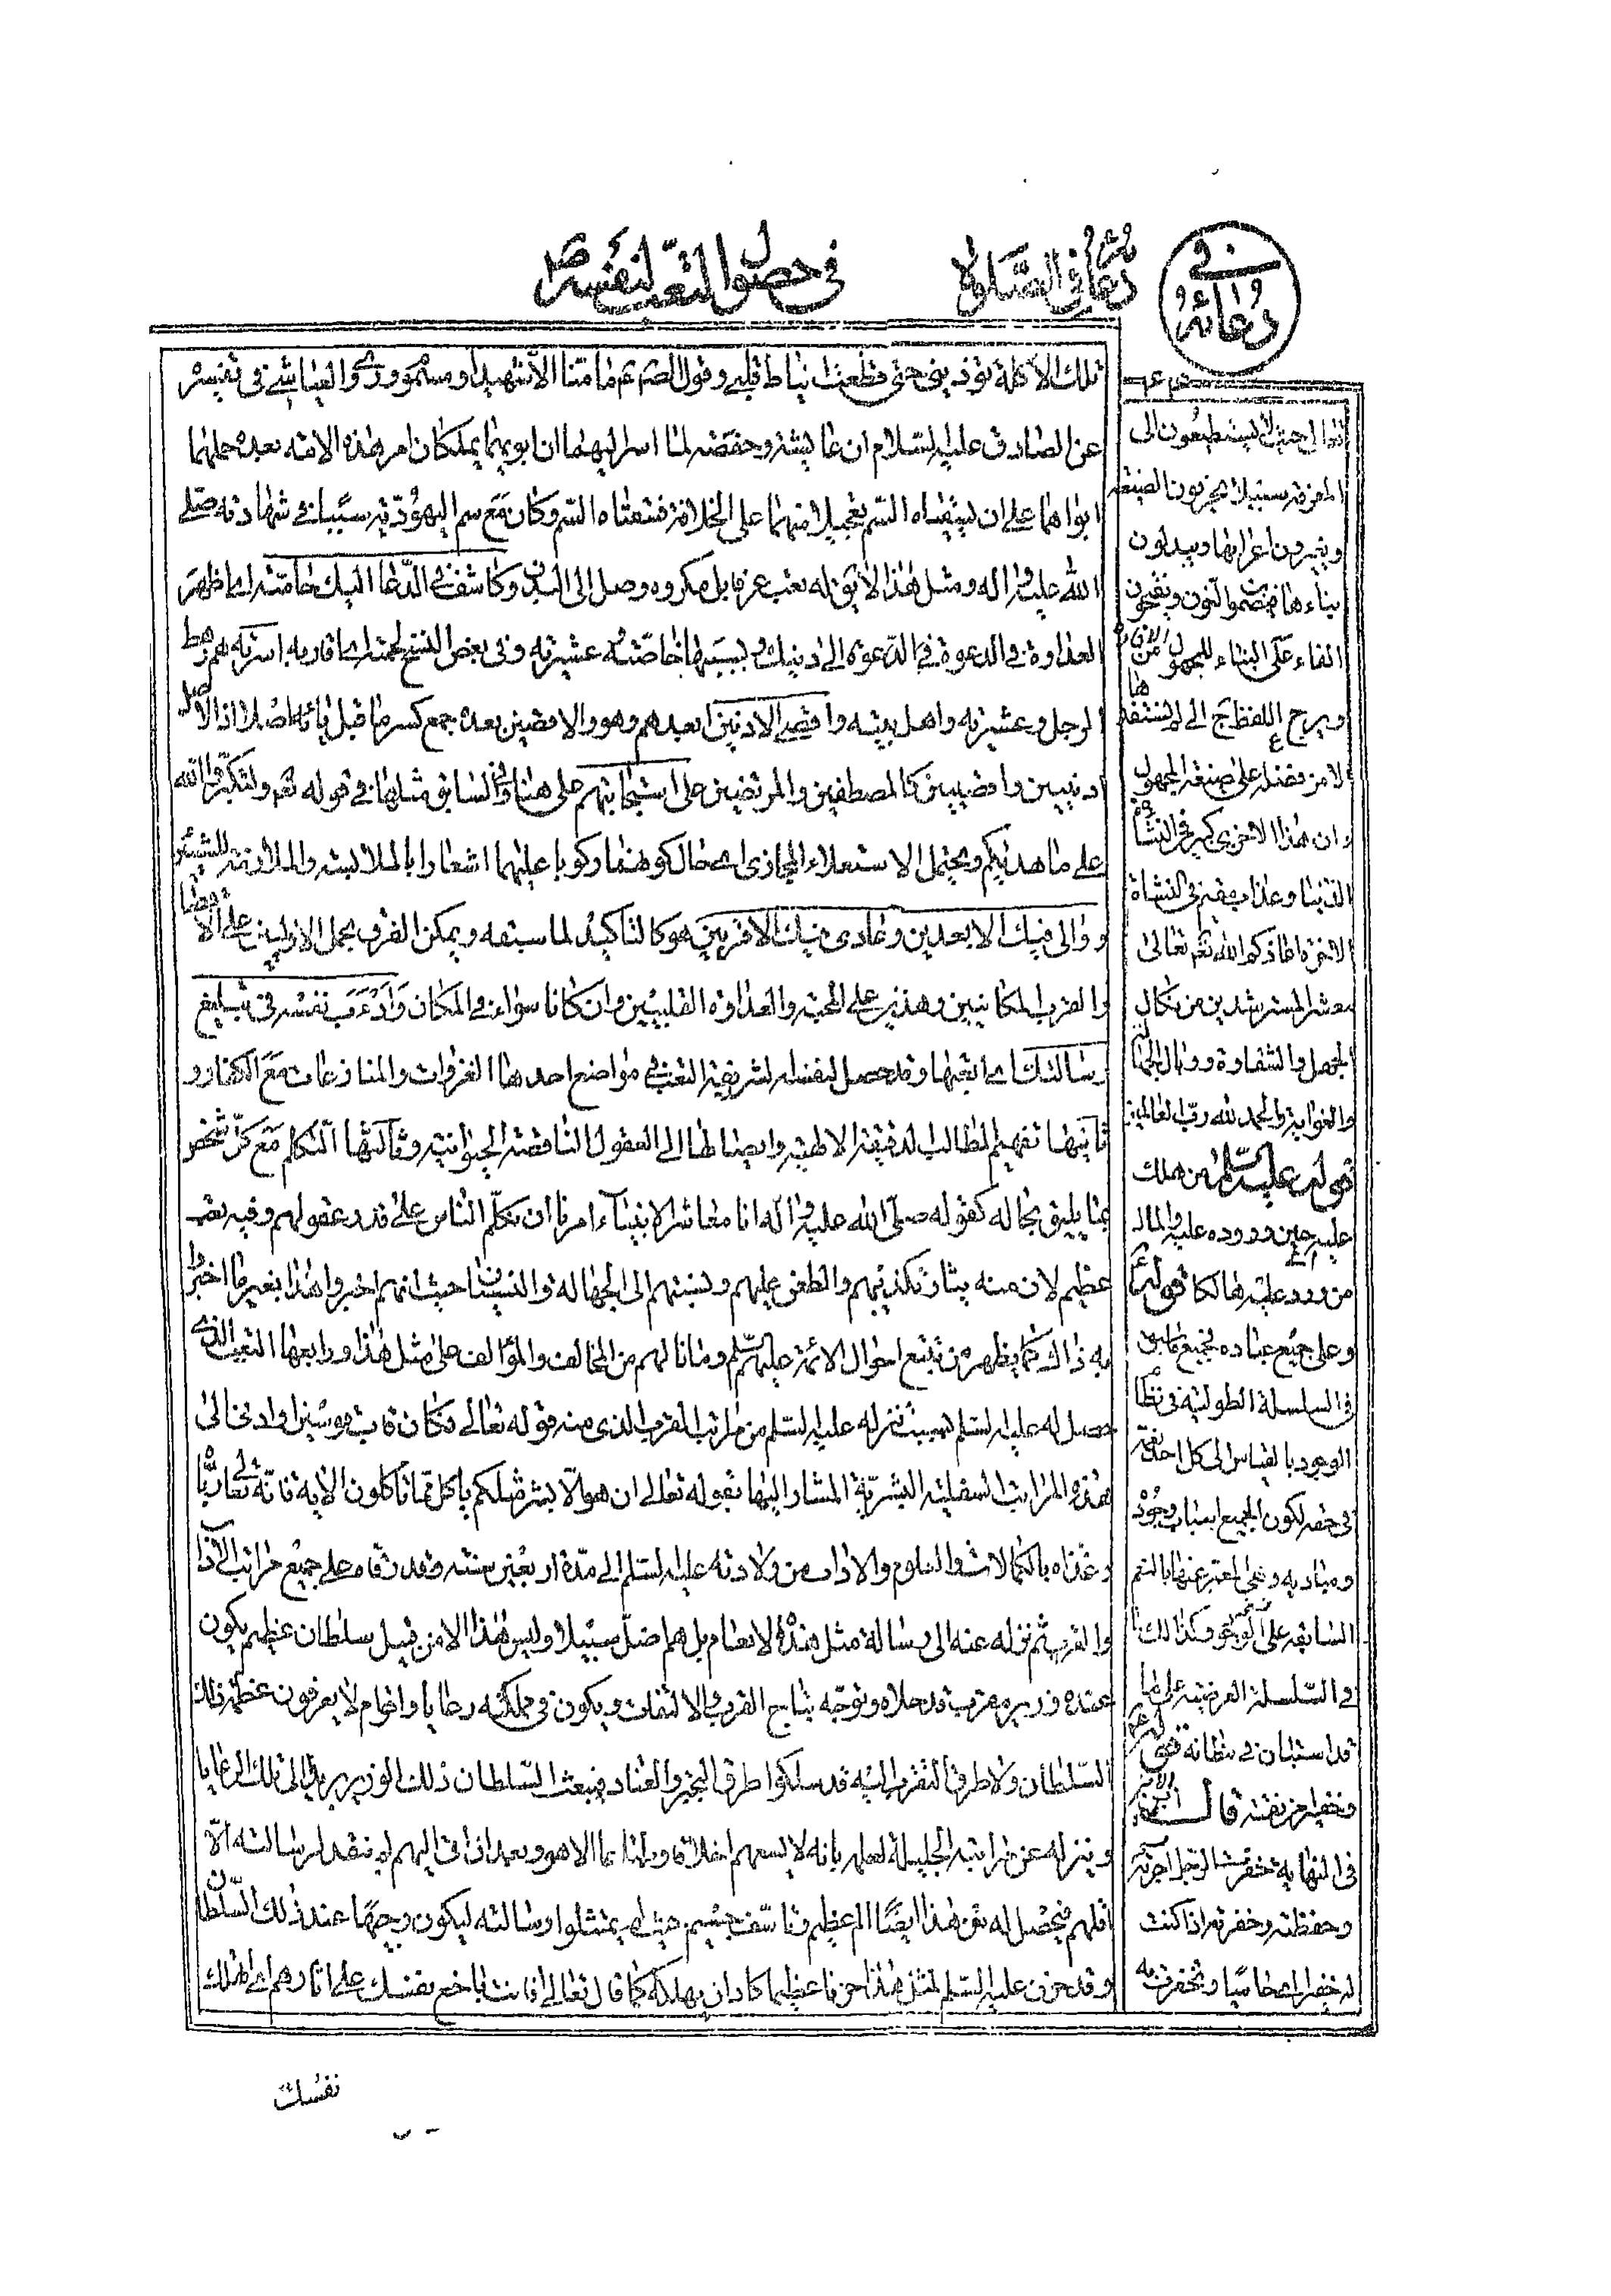 في دعائه
دعائه في الصلوة
في حصول التعب لنفسه ص
تلك الاكلة تؤذيني حتى قطعت نياط قلبي وقول الصادق ع ما منا الا شهيد او مسموم وروى العياشي في تفسيره
عن الصادق عليه السلام ان عايشة وحفصة لما اسر اليهما ان ابويهما يملكان امر هذه الامة بعده حملهما
ابواهما على ان يسقياه السم تعجيلا منهما على الخلافة فسقتاه السم وكان مع سم اليهودية سببا في شهادته صلى
الله عليه واله ومثل هذا لا يق له تعب عرفا بل مكروه وصل الى البدن وكاشف في الدعاء اليك حامته اى ظهر
العداوة في الدعوة في الدعوة الى دينك وبسببها خاصته عشيرته وفي بعض النسخ لحمته اى اقاربه اسرته هم رهط
الرجل وعشيرته واهل بيته واقصى الادنين ابعدهم وهو والاقصين بعده جمع كسر ما قبل يائه اصلا اذ الاصل
ادنيين واقصيين كالمصطفين والمرتضين على استجابتهم على هنا وفي السابق مثلها في قوله تعم ولتكبروا الله
على ما هديكم ويحتمل الاستعلاء المجازى اى حال كونهما ركوبا عليهما اشعارا بالملابسة والملازمة للشيئين
ووالى فيك الابعدين وعادى فيك الاقربين هو كالتاكيد لما سبقه ويمكن الفرق بحمل الاوليين على الاقصا
والقرب المكانيين وهذين على المحبة والعداوة القلبيين وان كانا سواء في المكان وادءب نفسه في تبليغ
رسالتك اى اتعبها وقد حصل لنفسه الشريفة التعب في مواضع احدها الغزوات والمنازعات مع الكفار و
ثانيها تفهيم المطالب الدقيقة الالهية وايصالها الى العقول الناقصة الحيوانية وثالثها التكلم مع كل شخص
بما يليق بحاله كقوله صلى الله عليه واله انا معاشر الانبياء امرنا ان نكلم الناس على قدر عقولهم وفيه تعب
عظيم لان منه يثار تكذيبهم والطعن عليهم ونسبتهم الى الجهالة والنسيان حيث انهم اخبروا هذا بغير ما اخبروا
به ذاك كما يظهر من تتبع احوال الائمة عليهم السلم وما نالهم من المخالف والمؤالف على مثل هذا ورابعها التعب الذى
حصل له عليه السلم بسبب تنزله عليه السلم من مراتب القرب الذى منه قوله تعالى فكان قاب قوسين او ادنى الى
هذه المراتب السفلية البشرية المشار اليها بقوله تعالى ان هو الا بشر مثلكم ياكل مما تاكلون الاية فانه تعالى رباه
وغذاه بالكمالات والعلوم والاداب من ولادته عليه السلم الى مدة اربعين سنة وقد رقاه على جميع مراتب الاذا
والقرب ثم نزله عنه الى رسالة مثل هذه الانعام بل هم اضل سبيلا وليس هذا الا من قبيل سلطان عظيم يكون
عنده وزير مقرب قد حلاه وتوجه بتاج القرب والالتفات ويكون في مملكته رعايا واقوام لا يعرفون عظمة ذلك
السلطان ولا طرق التقرب اليه قد سلكوا طرق التجبر والعناد فيبعث السلطان ذلك الوزير يريد الى تلك الرعايا
وينزله عن مراتبه الجليلة لعلمه بانه لا يسعهم اخلاقا وطباعا الا هو وبعد اذ اتى اليهم لم ينقد لرسالته الا
اقلهم فيحصل له من هذا ايضا الم عظيم وتاسف جسيم حيث لم يمتثلوا رسالته ليكون وجيها عند ذلك السلطان
وقد حزن عليه السلم لمثل هذا حزنا عظيما كاد ان يهلكه كما قال تعالى فانت باخع نفسك على اثارهم اى مهلك
نفسك
اتوا الى حيث لا يستطيعون الى
المعرفة سبيلا يحرفون الصيغة
ويغيرون اعرابها ويبدلون
بناءها فيضمون النون ويفتحون
الفاء على البناء للمجهول من الافناء
ويرجع اللفظ ح الى لم تستفدها
الا من فضله على صيغة المجهول
وان هذا الاخزى كبير في النشأة
الدنيا وعذاب مقيم في النشاة
الاخرة اعاذكم الله تعم تعالى
معشر المسترشدين من نكال
الجهل والشقاوة ووبال الجهالة
والغواية والحمد لله رب العالمين
قوله عليه السلم من هلك
عليه حين وروده عليه والمال
من ورد عليه هالكا قوله
وعلى جميع عباده بجميع ما بين
في السلسلة الطولية في نظام
الوجود بالقياس الى كل احد نعمة
في حقه لكون الجميع اسباب وجوده
ومباديه وهي المعبر عنها بالنعم
السابقة على الوجود وكذلك ما
في السلسلة العرضية على ما
قد استبان في مظانه قوله
وخفيرا من نقمته قال ابن الاثير
في النهاية خفرت الرجل اجرته
وحفظته وخفرته اذا كنت
له خفيرا اى حاميا وتخفرت به